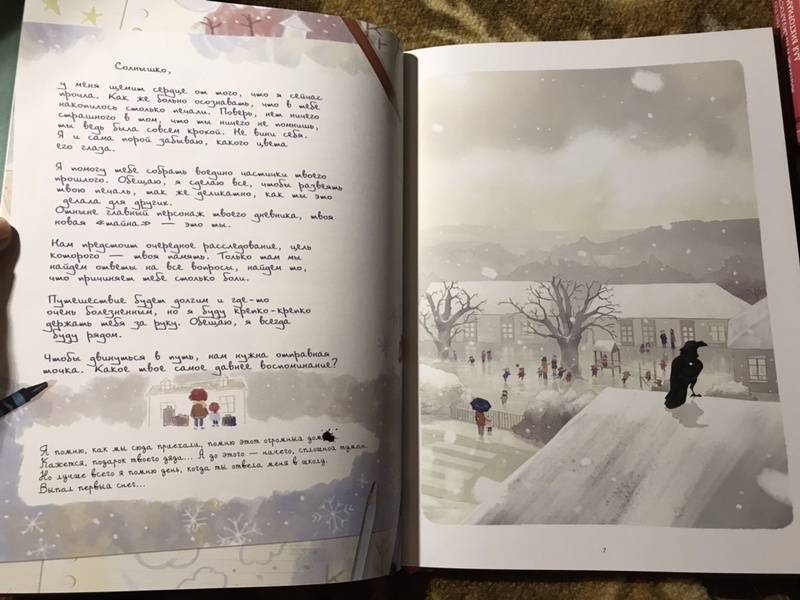 Солнышко,
у меня щемит сердце от того, что я сейчас
прочла. Как же больно осознавать, что в тебе
накопилось столько печали. Поверь, нет ничего
страшного в том, что ты ничего не помнишь,
ты ведь была совсем крохой. Не вини себя.
Я и сама порой забываю, какого цвета
его глаза.
Я помогу тебе собрать воедино частички твоего
прошлого. Обещаю, я сделаю все, чтобы развеять
твою печаль, так же деликатно, как ты это
делала для других.
Отныне главный персонаж твоего дневника, твоя
новая «тайна» — это ты.
Нам предстоит очередное расследование, цель
которого — твоя память. Только там мы
найдем ответы на все вопросы, найдем то,
что причиняет тебе столько боли.
Путешествие будет долгим и где-то
очень болезненным, но я буду крепко-крепко
держать тебя за руку. Обещаю, я всегда
буду рядом.
Чтобы двинуться в путь, нам нужна отправная
точка. Какое твое самое давнее воспоминание?
Я помню, как мы сюда приехали, помню этот огромный дом
Кажется, подарок твоего дяди... А до этого — ничего, сплошной туман.
Но лучше всего я помню день, когда ты отвела меня в школу.
Выпал первый снег...
7